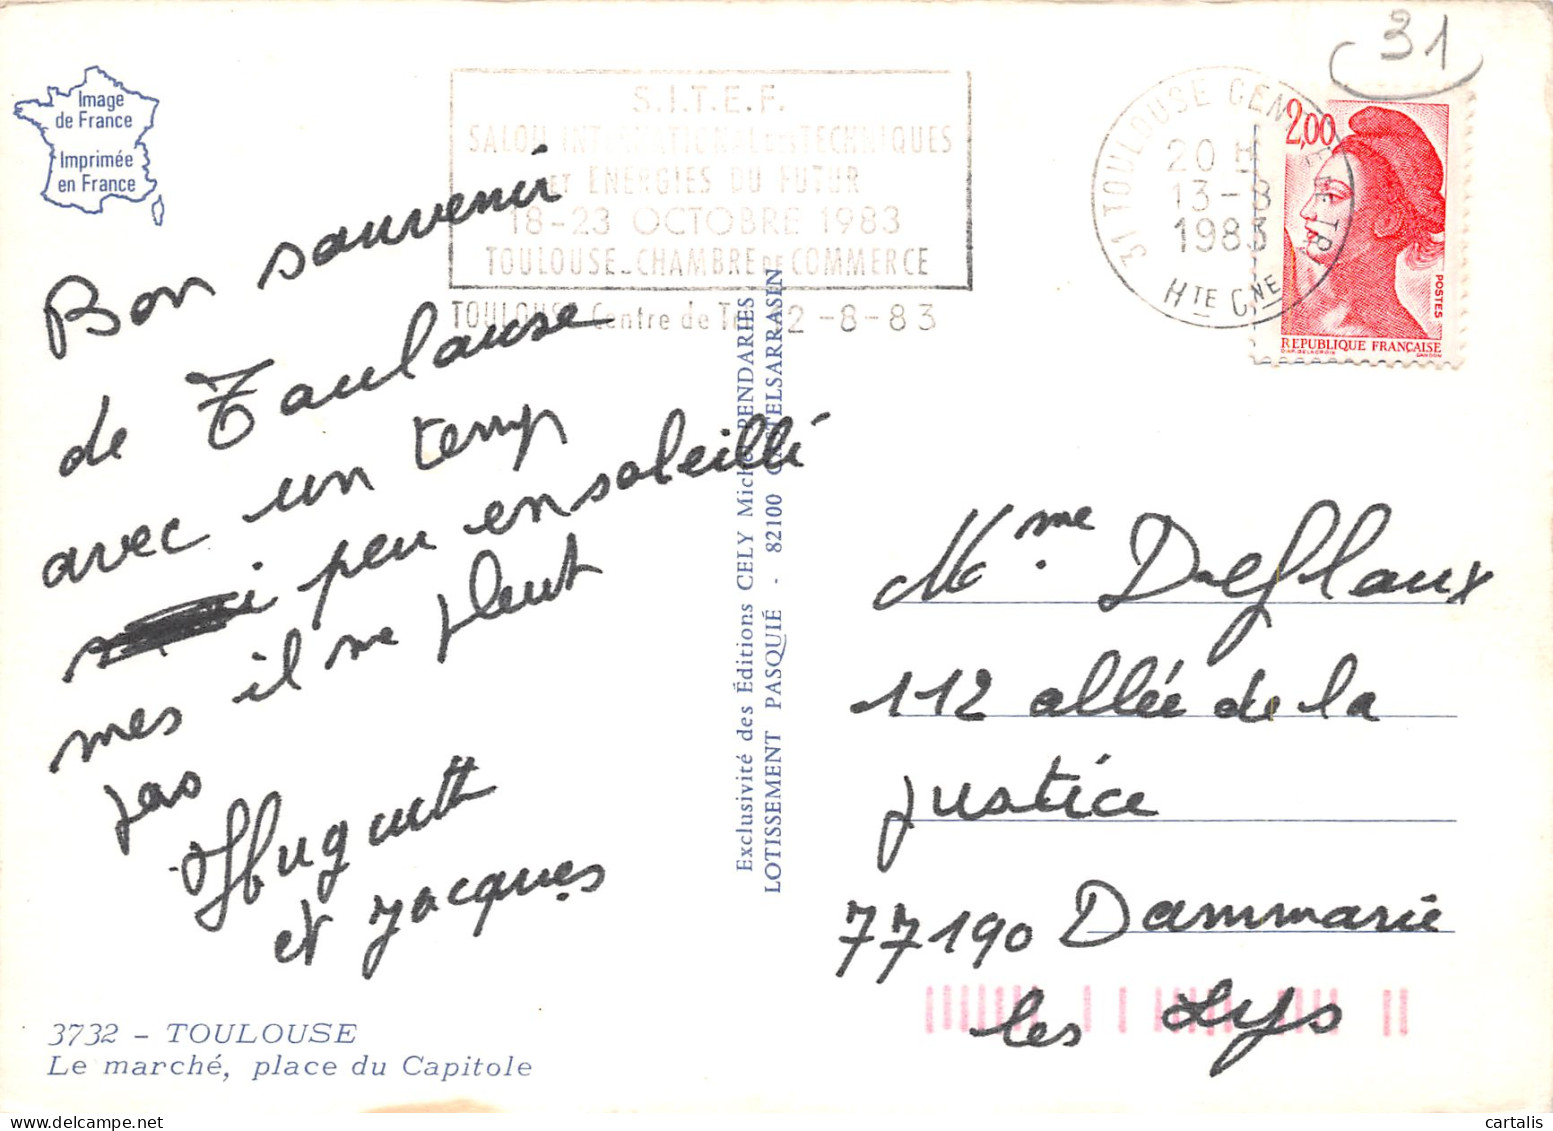 Image
de France
Imprimée
en France
S.I.T.E.F.
SALON INTERNATIONAL DES TECHNIQUES
ET ENERGIES DU FUTUR
18-23 OCTOBRE 1983
TOULOUSE-CHAMBRE DE COMMERCE
TOULOUSE Centre de Tri 12-8-83
31 TOULOUSE CENTRE DE TRI
20 H
13-8
1983
HTE GNE
31
2,00
POSTES
REPUBLIQUE FRANÇAISE
D'APRES DELACROIX GANDON
Bon souvenir
de Toulouse
avec un temp
peu ensoleillé
mes il ne pleut
pas
Huguette
et Jacques
Exclusivité des Éditions CELY Michel PENDARIES
LOTISSEMENT PASQUIÉ - 82100 CASTELSARRASIN
Mme. Deflaux
112 allée de la
justice
77190 Dammarie
les Lys
3732 - TOULOUSE
Le marché, place du Capitole
cartalis